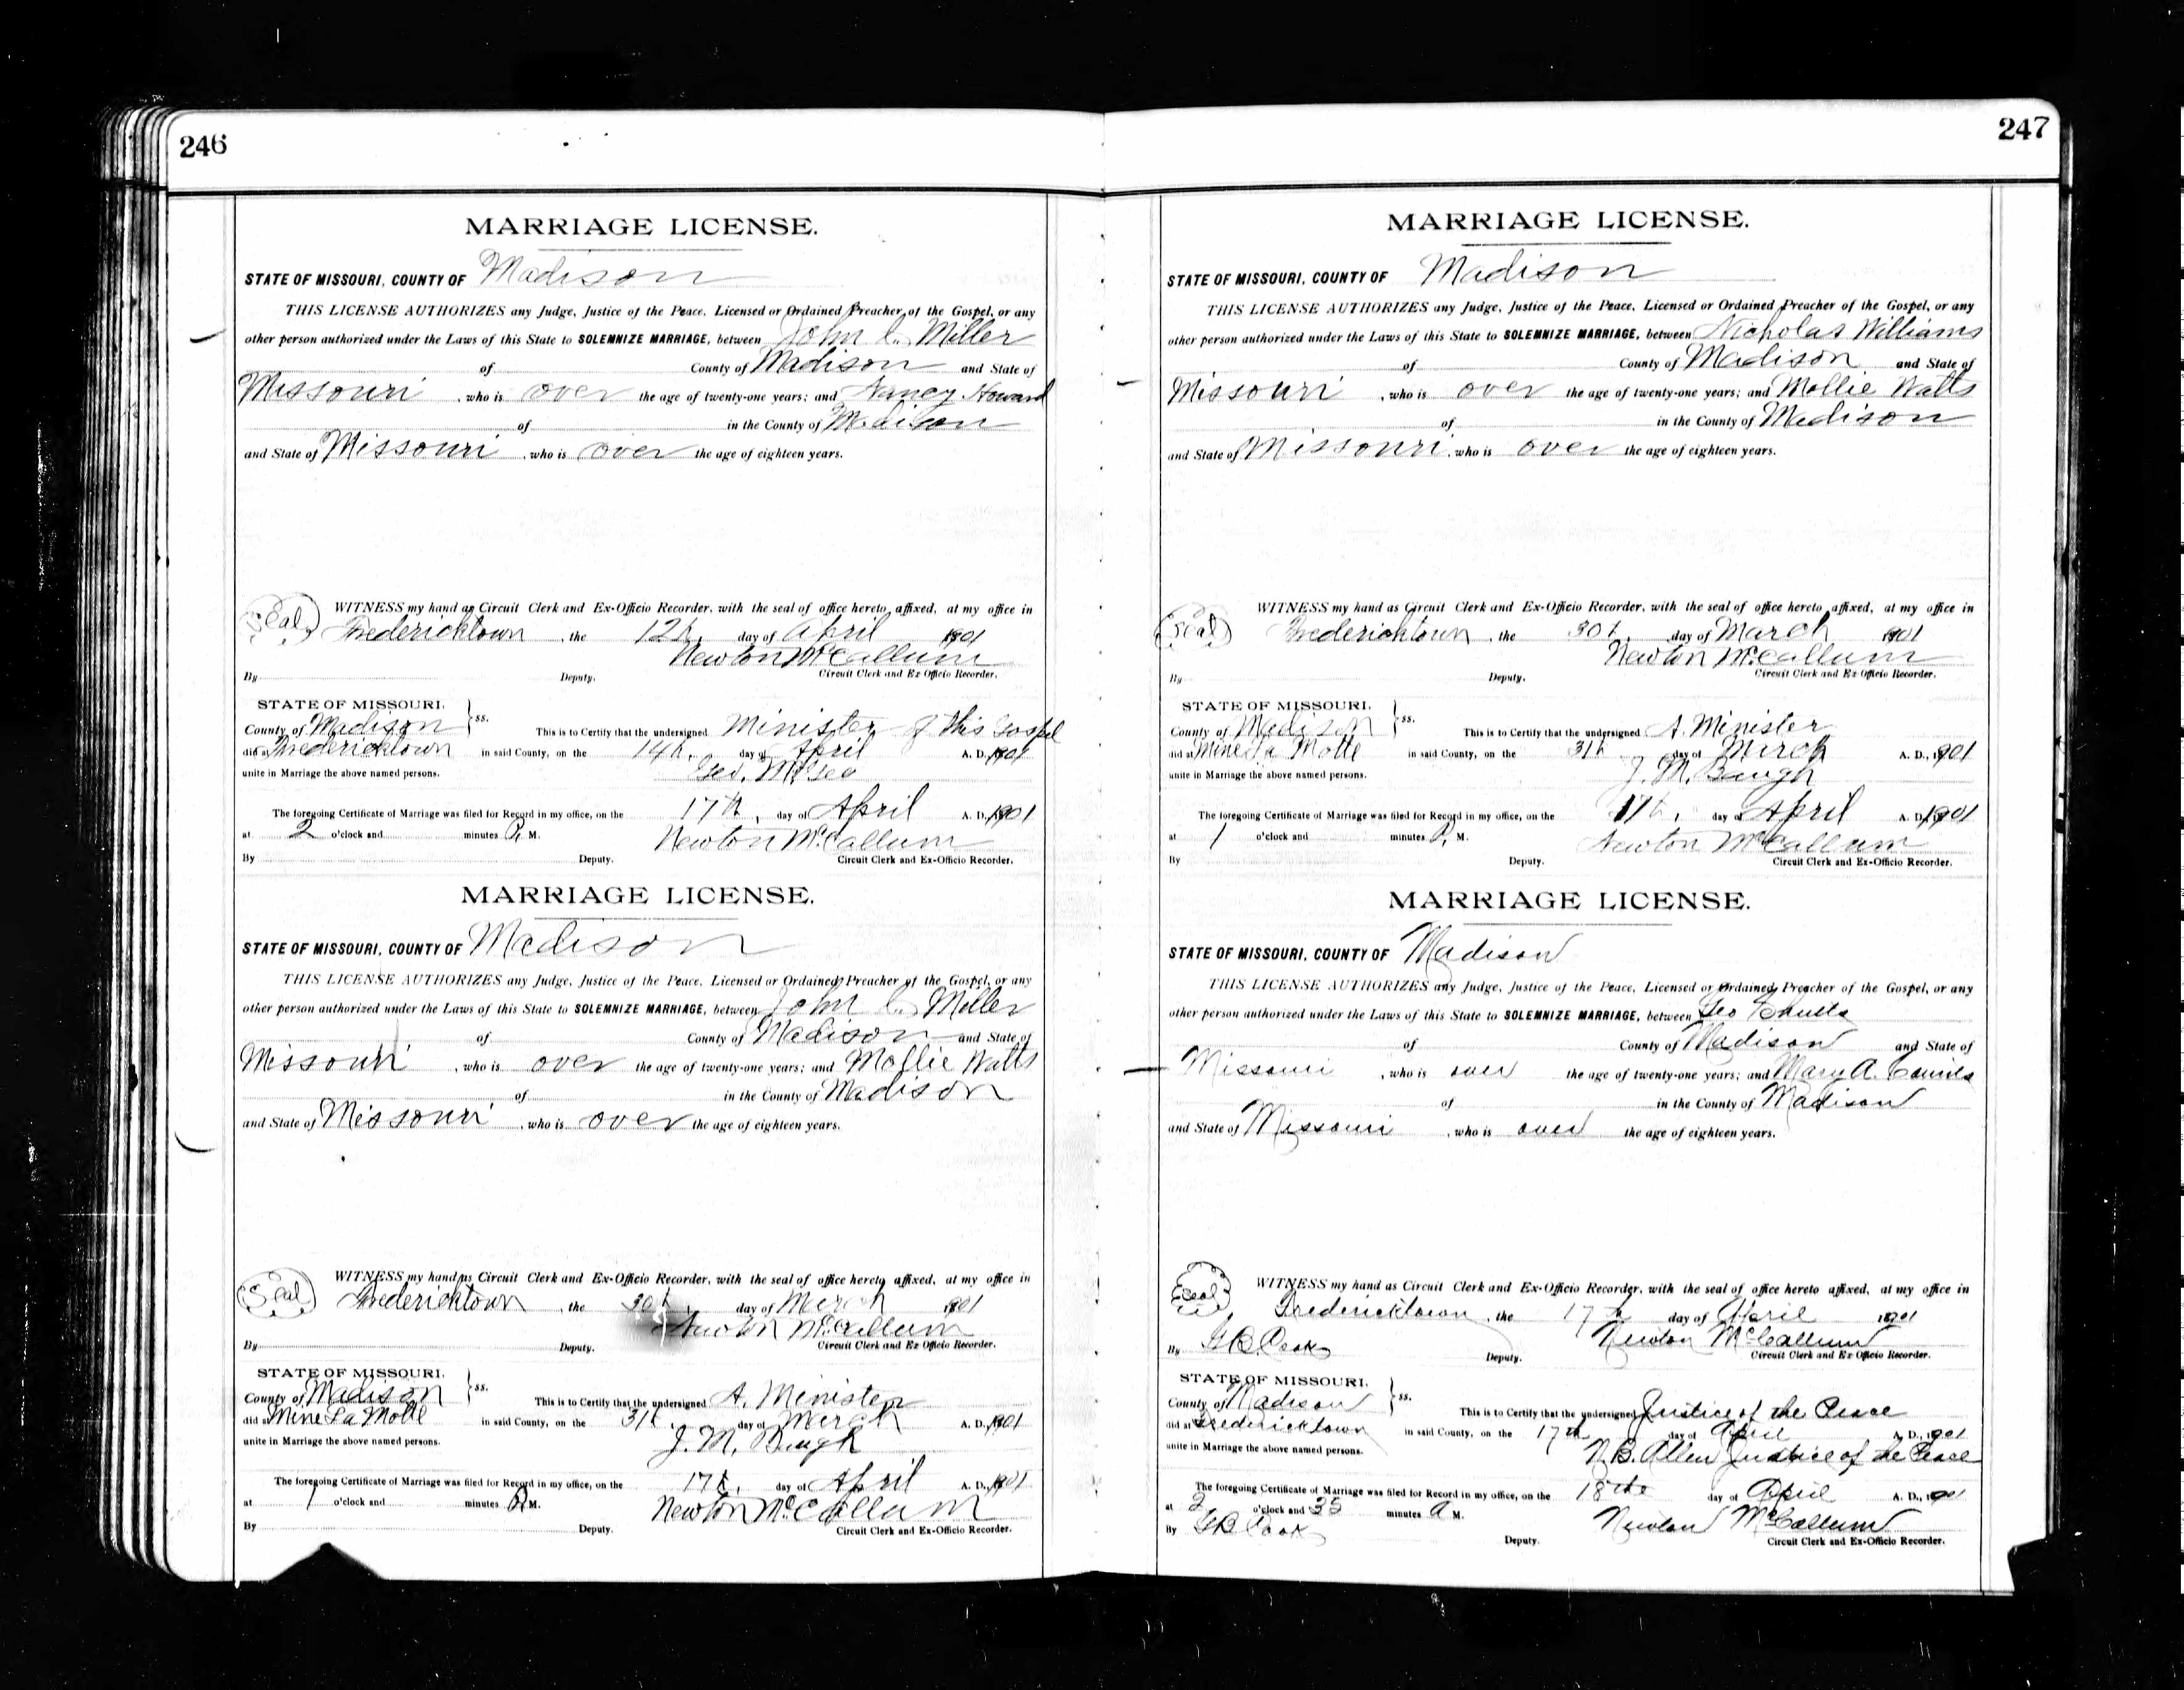 246
MARRIAGE LICENSE.
STATE OF MISSOURI, COUNTY OF Madison
THIS LICENSE AUTHORIZES any Judge, Justice of the Peace, Licensed or Ordained Preacher of the Gospel, or any
other person authorized under the Laws of this State to SOLEMNIZE MARRIAGE, between John C. Miller
of County of Madison and State of
Missouri, who is over the age of twenty-one years; and Nancy Howard
of in the County of Madison
and State of Missouri, who is over the age of eighteen years.
Seal WITNESS my hand as Circuit Clerk and Ex-Officio Recorder, with the seal of office hereto affixed, at my office in
Fredericktown, the 12th, day of April 1901
Newton McCallum
By Deputy. Circuit Clerk and Ex Officio Recorder.
STATE OF MISSOURI,
County of Madison ss. This is to Certify that the undersigned Minister of this Gospel
did at Fredericktown in said County, on the 14th. day of April A. D., 1901
unite in Marriage the above named persons. Geo.
The foregoing Certificate of Marriage was filed for Record in my office, on the 17th, day of April A. D., 1901
at 2 o'clock and minutes P. M. Newton McCallum
By Deputy. Circuit Clerk and Ex-Officio Recorder.
MARRIAGE LICENSE.
STATE OF MISSOURI, COUNTY OF Madison
THIS LICENSE AUTHORIZES any Judge, Justice of the Peace, Licensed or Ordained Preacher of the Gospel, or any
other person authorized under the Laws of this State to SOLEMNIZE MARRIAGE, between John C. Miller
of County of Madison and State of
Missouri, who is over the age of twenty-one years; and Mollie Watts
of in the County of Madison
and State of Missouri, who is over the age of eighteen years.
Seal WITNESS my hand as Circuit Clerk and Ex-Officio Recorder, with the seal of office hereto affixed, at my office in
Fredericktown, the 30th, day of March 1901
Newton McCallum
By Deputy. Circuit Clerk and Ex Officio Recorder.
STATE OF MISSOURI,
County of Madison ss. This is to Certify that the undersigned A. Minister
did at Mine La Motte in said County, on the 31th. day of March A. D., 1901
unite in Marriage the above named persons. J. M. Baugh
The foregoing Certificate of Marriage was filed for Record in my office, on the 17th, day of April A. D., 1901
at 1 o'clock and minutes P. M. Newton McCallum
By Deputy. Circuit Clerk and Ex-Officio Recorder.
247
MARRIAGE LICENSE.
STATE OF MISSOURI, COUNTY OF Madison
THIS LICENSE AUTHORIZES any Judge, Justice of the Peace, Licensed or Ordained Preacher of the Gospel, or any
other person authorized under the Laws of this State to SOLEMNIZE MARRIAGE, between Nicholas Williams
of County of Madison and State of
Missouri, who is over the age of twenty-one years; and Mollie Watts
of in the County of Madison
and State of Missouri, who is over the age of eighteen years.
Seal WITNESS my hand as Circuit Clerk and Ex-Officio Recorder, with the seal of office hereto affixed, at my office in
Fredericktown, the 30th. day of March 1901
Newton McCallum
By Deputy. Circuit Clerk and Ex Officio Recorder.
STATE OF MISSOURI,
County of Madison ss. This is to Certify that the undersigned A. Minister
did at Mine La Motte in said County, on the 31th day of March A. D., 1901
unite in Marriage the above named persons. J. M. Baugh
The foregoing Certificate of Marriage was filed for Record in my office, on the 17th, day of April A. D., 1901
at 1 o'clock and minutes P. M. Newton McCallum
By Deputy. Circuit Clerk and Ex-Officio Recorder.
MARRIAGE LICENSE.
STATE OF MISSOURI, COUNTY OF Madison
THIS LICENSE AUTHORIZES any Judge, Justice of the Peace, Licensed or Ordained Preacher of the Gospel, or any
other person authorized under the Laws of this State to SOLEMNIZE MARRIAGE, between Geo
of County of Madison and State of
Missouri, who is over the age of twenty-one years; and Mary A.
of in the County of Madison
and State of Missouri, who is over the age of eighteen years.
Seal WITNESS my hand as Circuit Clerk and Ex-Officio Recorder, with the seal of office hereto affixed, at my office in
Fredericktown, the 17th day of April 1901
Newton McCallum
By G B Cook Deputy. Circuit Clerk and Ex Officio Recorder.
STATE OF MISSOURI,
County of Madison ss. This is to Certify that the undersigned Justice of the Peace
did at Fredericktown in said County, on the 17th day of April A. D., 1901
unite in Marriage the above named persons. N. B. Allen Justice of the Peace
The foregoing Certificate of Marriage was filed for Record in my office, on the 18th day of April A. D., 1901
at 2 o'clock and 35 minutes A M. Newton McCallum
By G B Cook Deputy. Circuit Clerk and Ex-Officio Recorder.